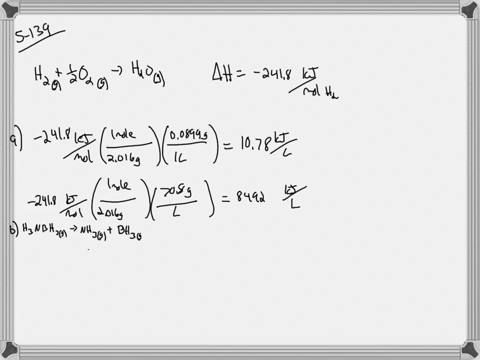 5-139
H₂(g) + ½O₂(g) → H₂O(g) ΔH = -241.8 kJ/mol H₂
a) -241.8 kJ/mol (1mole/2.016g)(0.0899g/1L) = 10.78 kJ/L
-241.8 kJ/mol (1mole/2.016g)(70.8g/L) = 8492 kJ/L
b) H₃NBH₃(s) → NH₃(g) + BH₃(g)